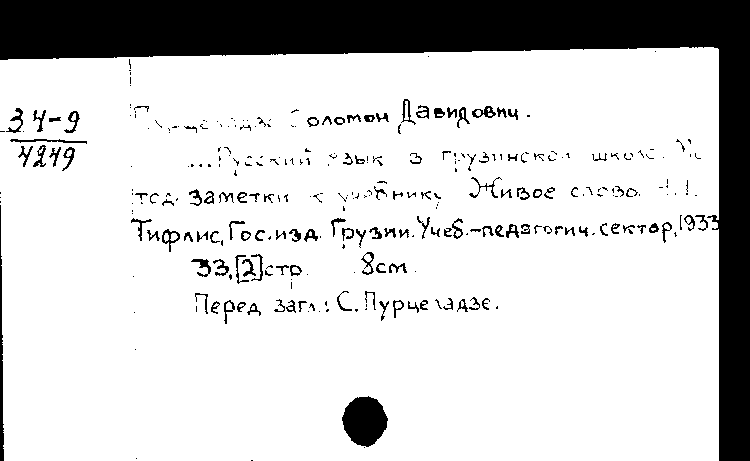 34-9
4249
Пурцеладзе Соломон Давидович.
...Русский язык в грузинской школе. Ме
тод. заметки к учебнику Живое слово. Ч.I.
Тифлис, Гос.изд. Грузии. Учеб.-педагогич. сектор, 1933
33,[2]стр. 8см.
Перед загл.: С. Пурцеладзе.